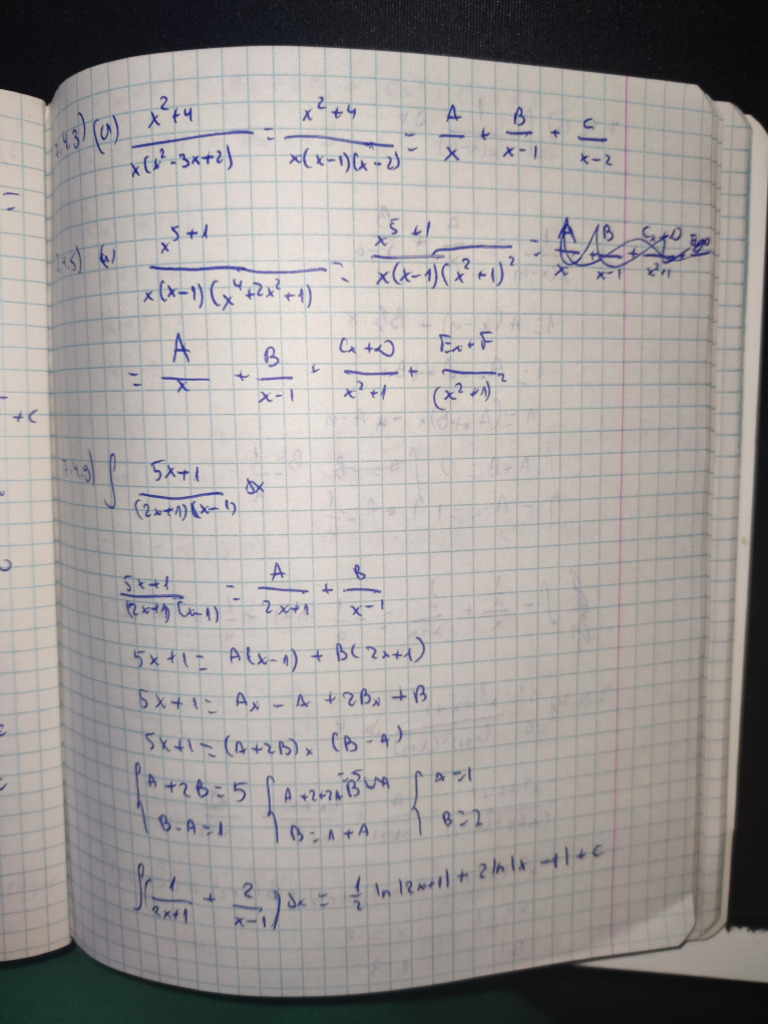 .4.3) (a) x²+4 / x(x²-3x+2) = x²+4 / x(x-1)(x-2) = A/x + B/x-1 + C/x-2
x⁵+1 / x(x-1)(x⁴+2x²+1) = x⁵+1 / x(x-1)(x²+1)² = A/x + B/x-1 + Cx+D/x²+1
= A/x + B/x-1 + Cx+D/x²+1 + Ex+F/(x²+1)²
7.4.9) ∫ 5x+1 / (2x+1)(x-1) dx
5x+1 / (2x+1)(x-1) = A/2x+1 + B/x-1
5x+1 = A(x-1) + B(2x+1)
5x+1 = Ax - A + 2Bx + B
5x+1 = (A+2B)x (B-A)
{ A+2B=5 { A+2+2A =5 { A=1
B-A=1 B=1+A B=2
∫(1/2x+1 + 2/x-1) dx = 1/2 ln|2x+1| + 2ln|x-1| + c
+c